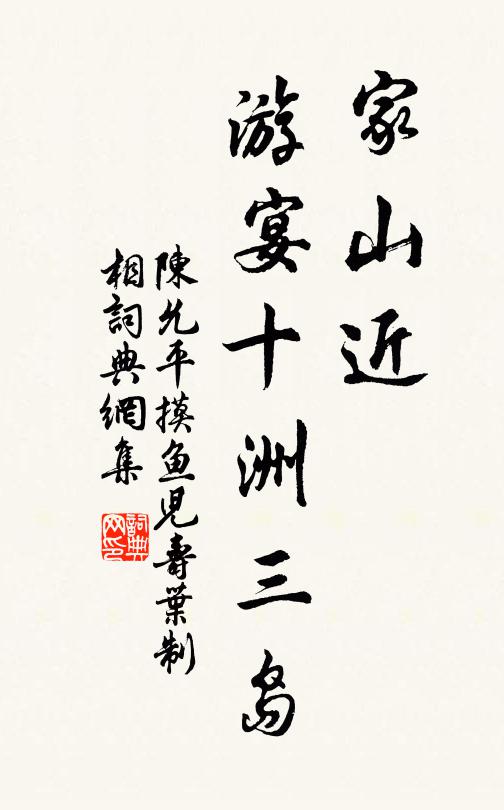 家山近
游宴十洲三岛
陳允平摸鱼児壽葉制
相詞典網集
詞典网印